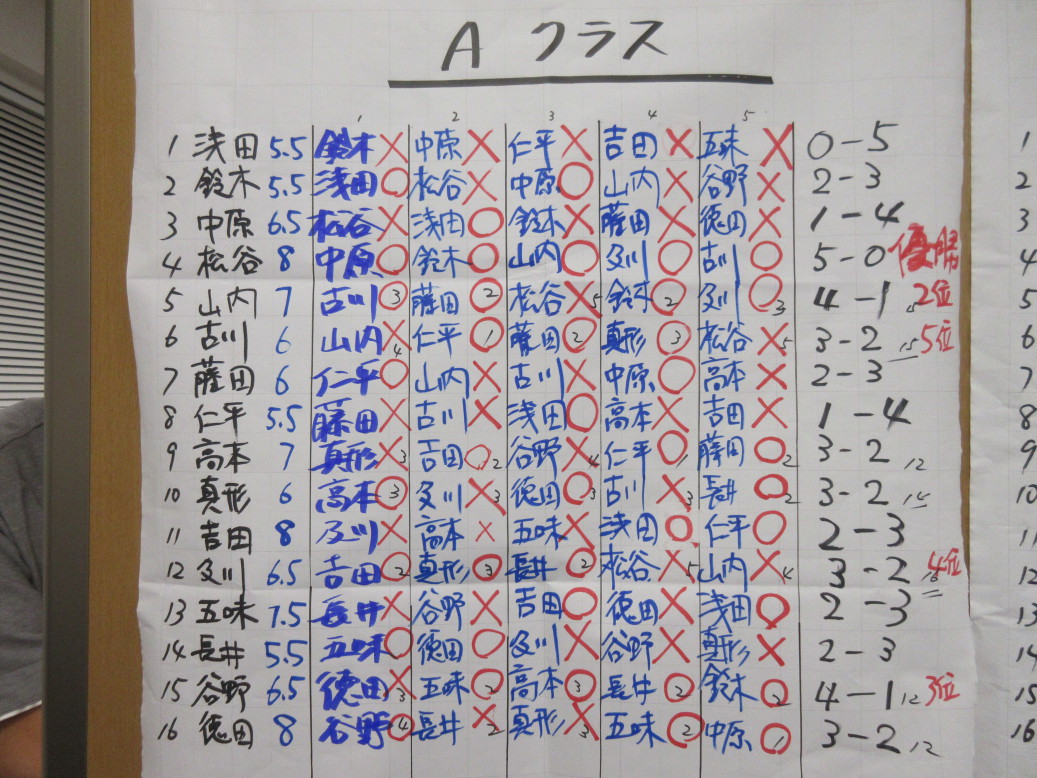 A クラス
1 2 3 4 5
1 浅田 5.5 鈴木 × 中原 × 仁平 × 吉田 × 五味 × 0-5
2 鈴木 5.5 浅田 ○ 松谷 × 中原 ○ 山内 × 谷野 × 2-3
3 中原 6.5 松谷 × 浅田 ○ 鈴木 × 薩田 × 徳田 × 1-4
4 松谷 8 中原 ○ 鈴木 ○ 山内 ○ 及川 ○ 古川 ○ 5-0 優勝
5 山内 7 古川 ○3 薩田 ○2 松谷 ×5 鈴木 ○2 及川 ○3 4-1 2位
6 古川 6 山内 ×4 仁平 ○1 薩田 ○2 真形 ○3 松谷 ×5 3-2 15 5位
7 薩田 6 仁平 ○ 山内 × 古川 × 中原 ○ 高本 × 2-3
8 仁平 5.5 薩田 × 古川 × 浅田 ○ 高本 × 吉田 × 1-4
9 高本 7 真形 ×3 吉田 ○2 谷野 ×4 仁平 ○1 薩田 ○2 3-2 12
10 真形 6 高本 ○3 及川 ×3 徳田 ○3 古川 ×3 長井 ○2 3-2 14
11 吉田 8 及川 × 高本 × 五味 × 浅田 ○ 仁平 ○ 2-3
12 及川 6.5 吉田 ○2 真形 ○3 長井 ○2 松谷 ×5 山内 ×4 3-2 16 4位
13 五味 7.5 長井 × 谷野 × 吉田 ○ 徳田 × 浅田 ○ 2-3
14 長井 5.5 五味 ○ 徳田 ○ 及川 × 谷野 × 真形 × 2-3
15 谷野 6.5 徳田 ×3 五味 ○2 高本 ○3 長井 ○2 鈴木 ○2 4-1 12 3位
16 徳田 8 谷野 ○4 長井 ×2 真形 ×3 五味 ○2 中原 ○1 3-2 12
1
2
3
4
5
6
7
8
9
10
11
12
13
14
15
16